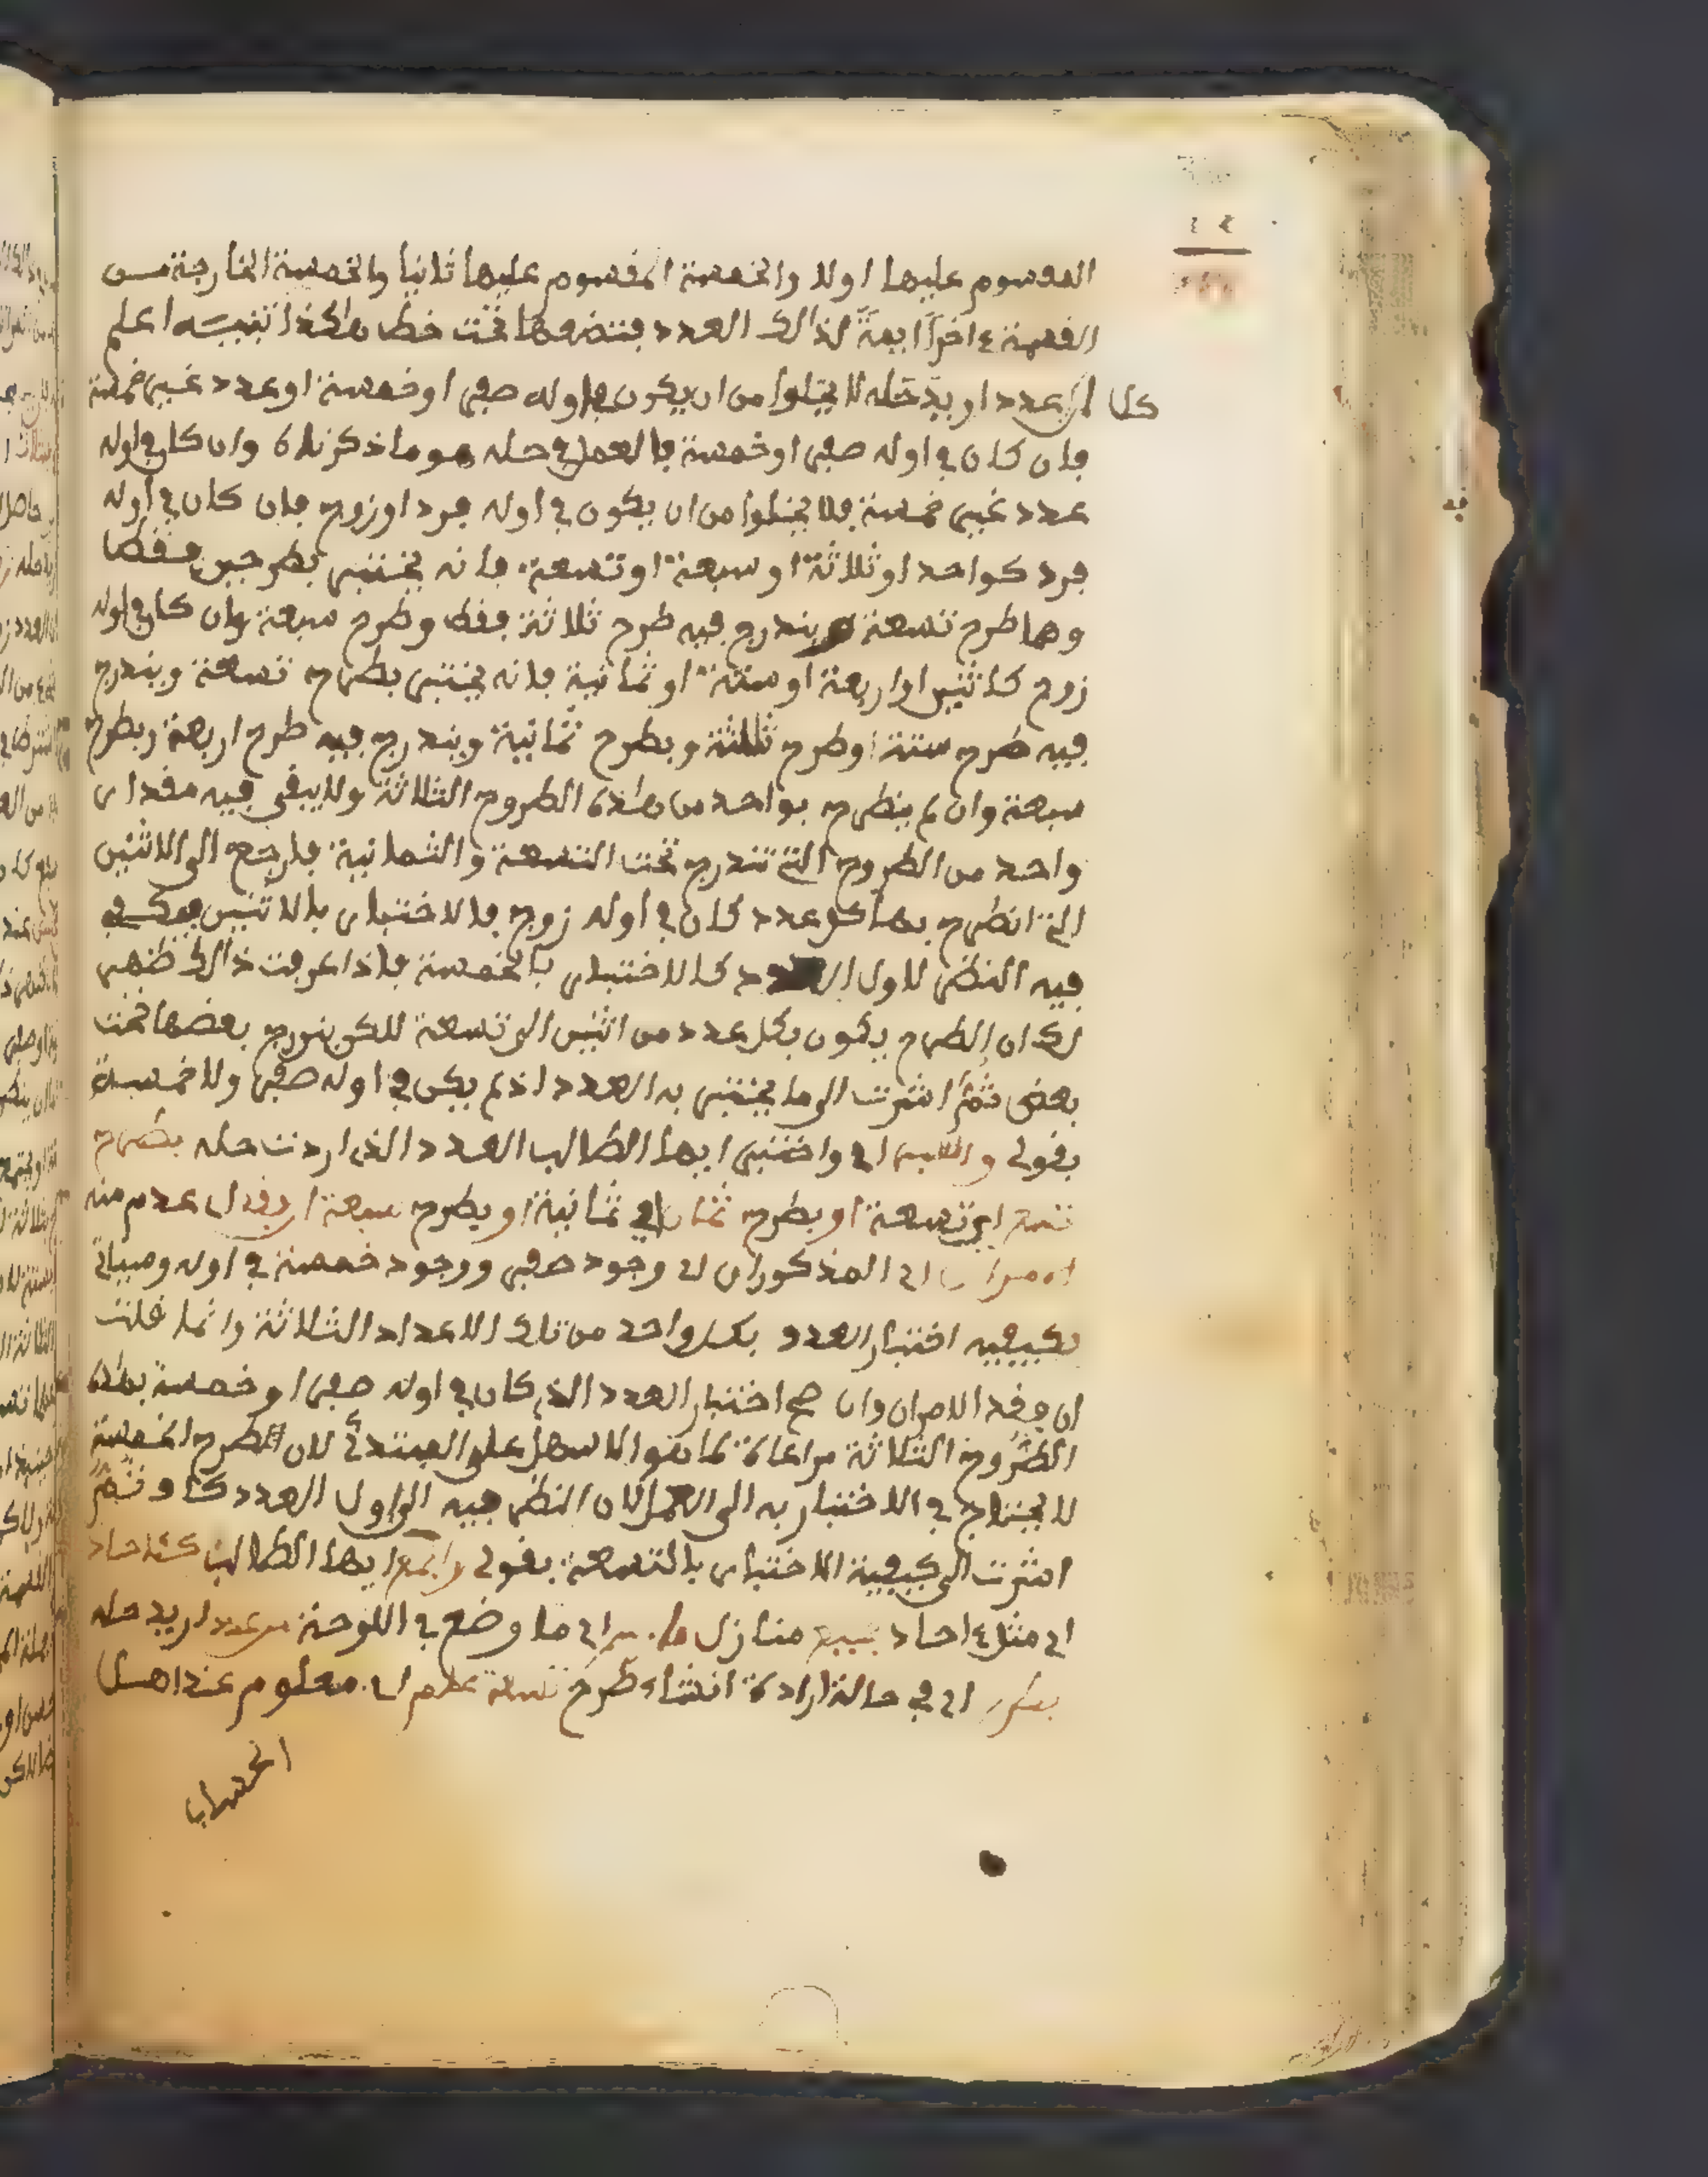 المقسوم عليها اولا والخمسة المقسوم عليها ثانيا والخمسة الخارجة من
القسمة اخرا ايمة لذالك العدد فتضعها تحت خط هاكذا تنبيه اعلم
ان كل عدد اريد حله لا يخلوا من ان يكون في اوله صفر او خمسة او عدد غير خمسة
فان كان في اوله صفر او خمسة فالعمل في حله هو ما ذكرناه وان كان في اوله
عدد غير خمسة فلا يخلوا من ان يكون في اوله فرد او زوج فان كان في اوله
فرد كواحد او ثلاثة او سبعة او تسعة فانه يختبر بطرحين فقط
وهما طرح تسعة ويندرج فيه طرح ثلاثة فقط وطرح سبعة وان كان في اوله
زوج كاثنين او اربعة او ستة او ثمانية فانه يختبر بطرح تسعة ويندرج
فيه طرح ستة او طرح ثلثة وبطرح ثمانية ويندرج فيه طرح اربعة وبطرح
سبعة وان لم ينطرح بواحد من هاذه الطروح الثلاثة ولا يبقى فيه مقدار
واحد من الطروح التي تندرج تحت التسعة والثمانية فارجع الى الاثنين
التي انطرح بها كل عدد كان في اوله زوج فالاختبار بالاثنين يكفي
فيه النظر لاول العدد كالاختبار بالخمسة فاذا عرفت ذالك ظهر
لك ان الطرح يكون بكل عدد من اثنين الى تسعة لكن يندرج بعضها تحت
بعض ثم اشرت الى ما يختبر به العدد اذ لم يكن في اوله صفر ولا خمسة
بقولي اي واختبر ايها الطالب العدد الذي اردت حله بطرح
تسع اي تسعة او بطرح ثمان اي ثمانية او بطرح سبعة ان فقد اي عدم منه
الامران اي المذكوران اي وجود صفر ووجود خمسة في اوله وسياتي
كيفية اختبار العدد بكل واحد من تلك الاعداد الثلاثة وانما قلت
ان فقد الامران وان صح اختبار العدد الذي كان في اوله صفر او خمسة بهاذه
الطروح الثلاثة مراعاة لما هو الاسهل على المبتدئ لان الطرح الخمسة
لا يحتاج في الاختبار به الى العمل لان النظر فيه الى اول العدد كاف ثم
اشرت الى كيفية الاختبار بالتسعة بقولي واجمع ايها الطالب كئاحاد
اي مثل احاد جميع منازل ما اي ما وضع في اللوحة من عدد اريد حله
بطرح اي في حالة ارادة انشاء طرح تسعة علم اي معلوم عند اهل
الحساب